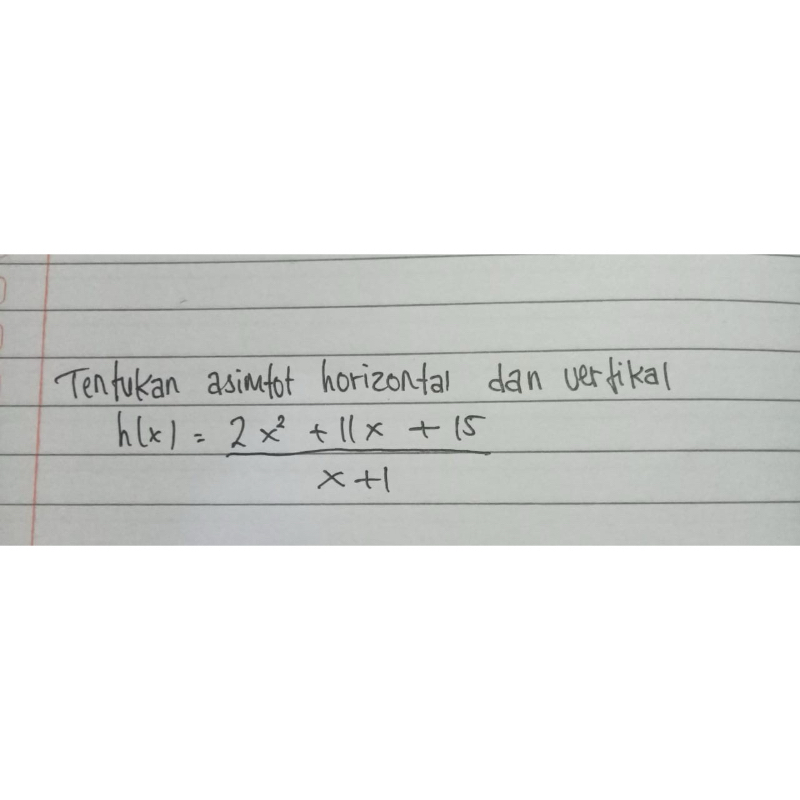 Tentukan asimtot horizontal dan vertikal
h(x) = 2x² + 11x + 15
x + 1